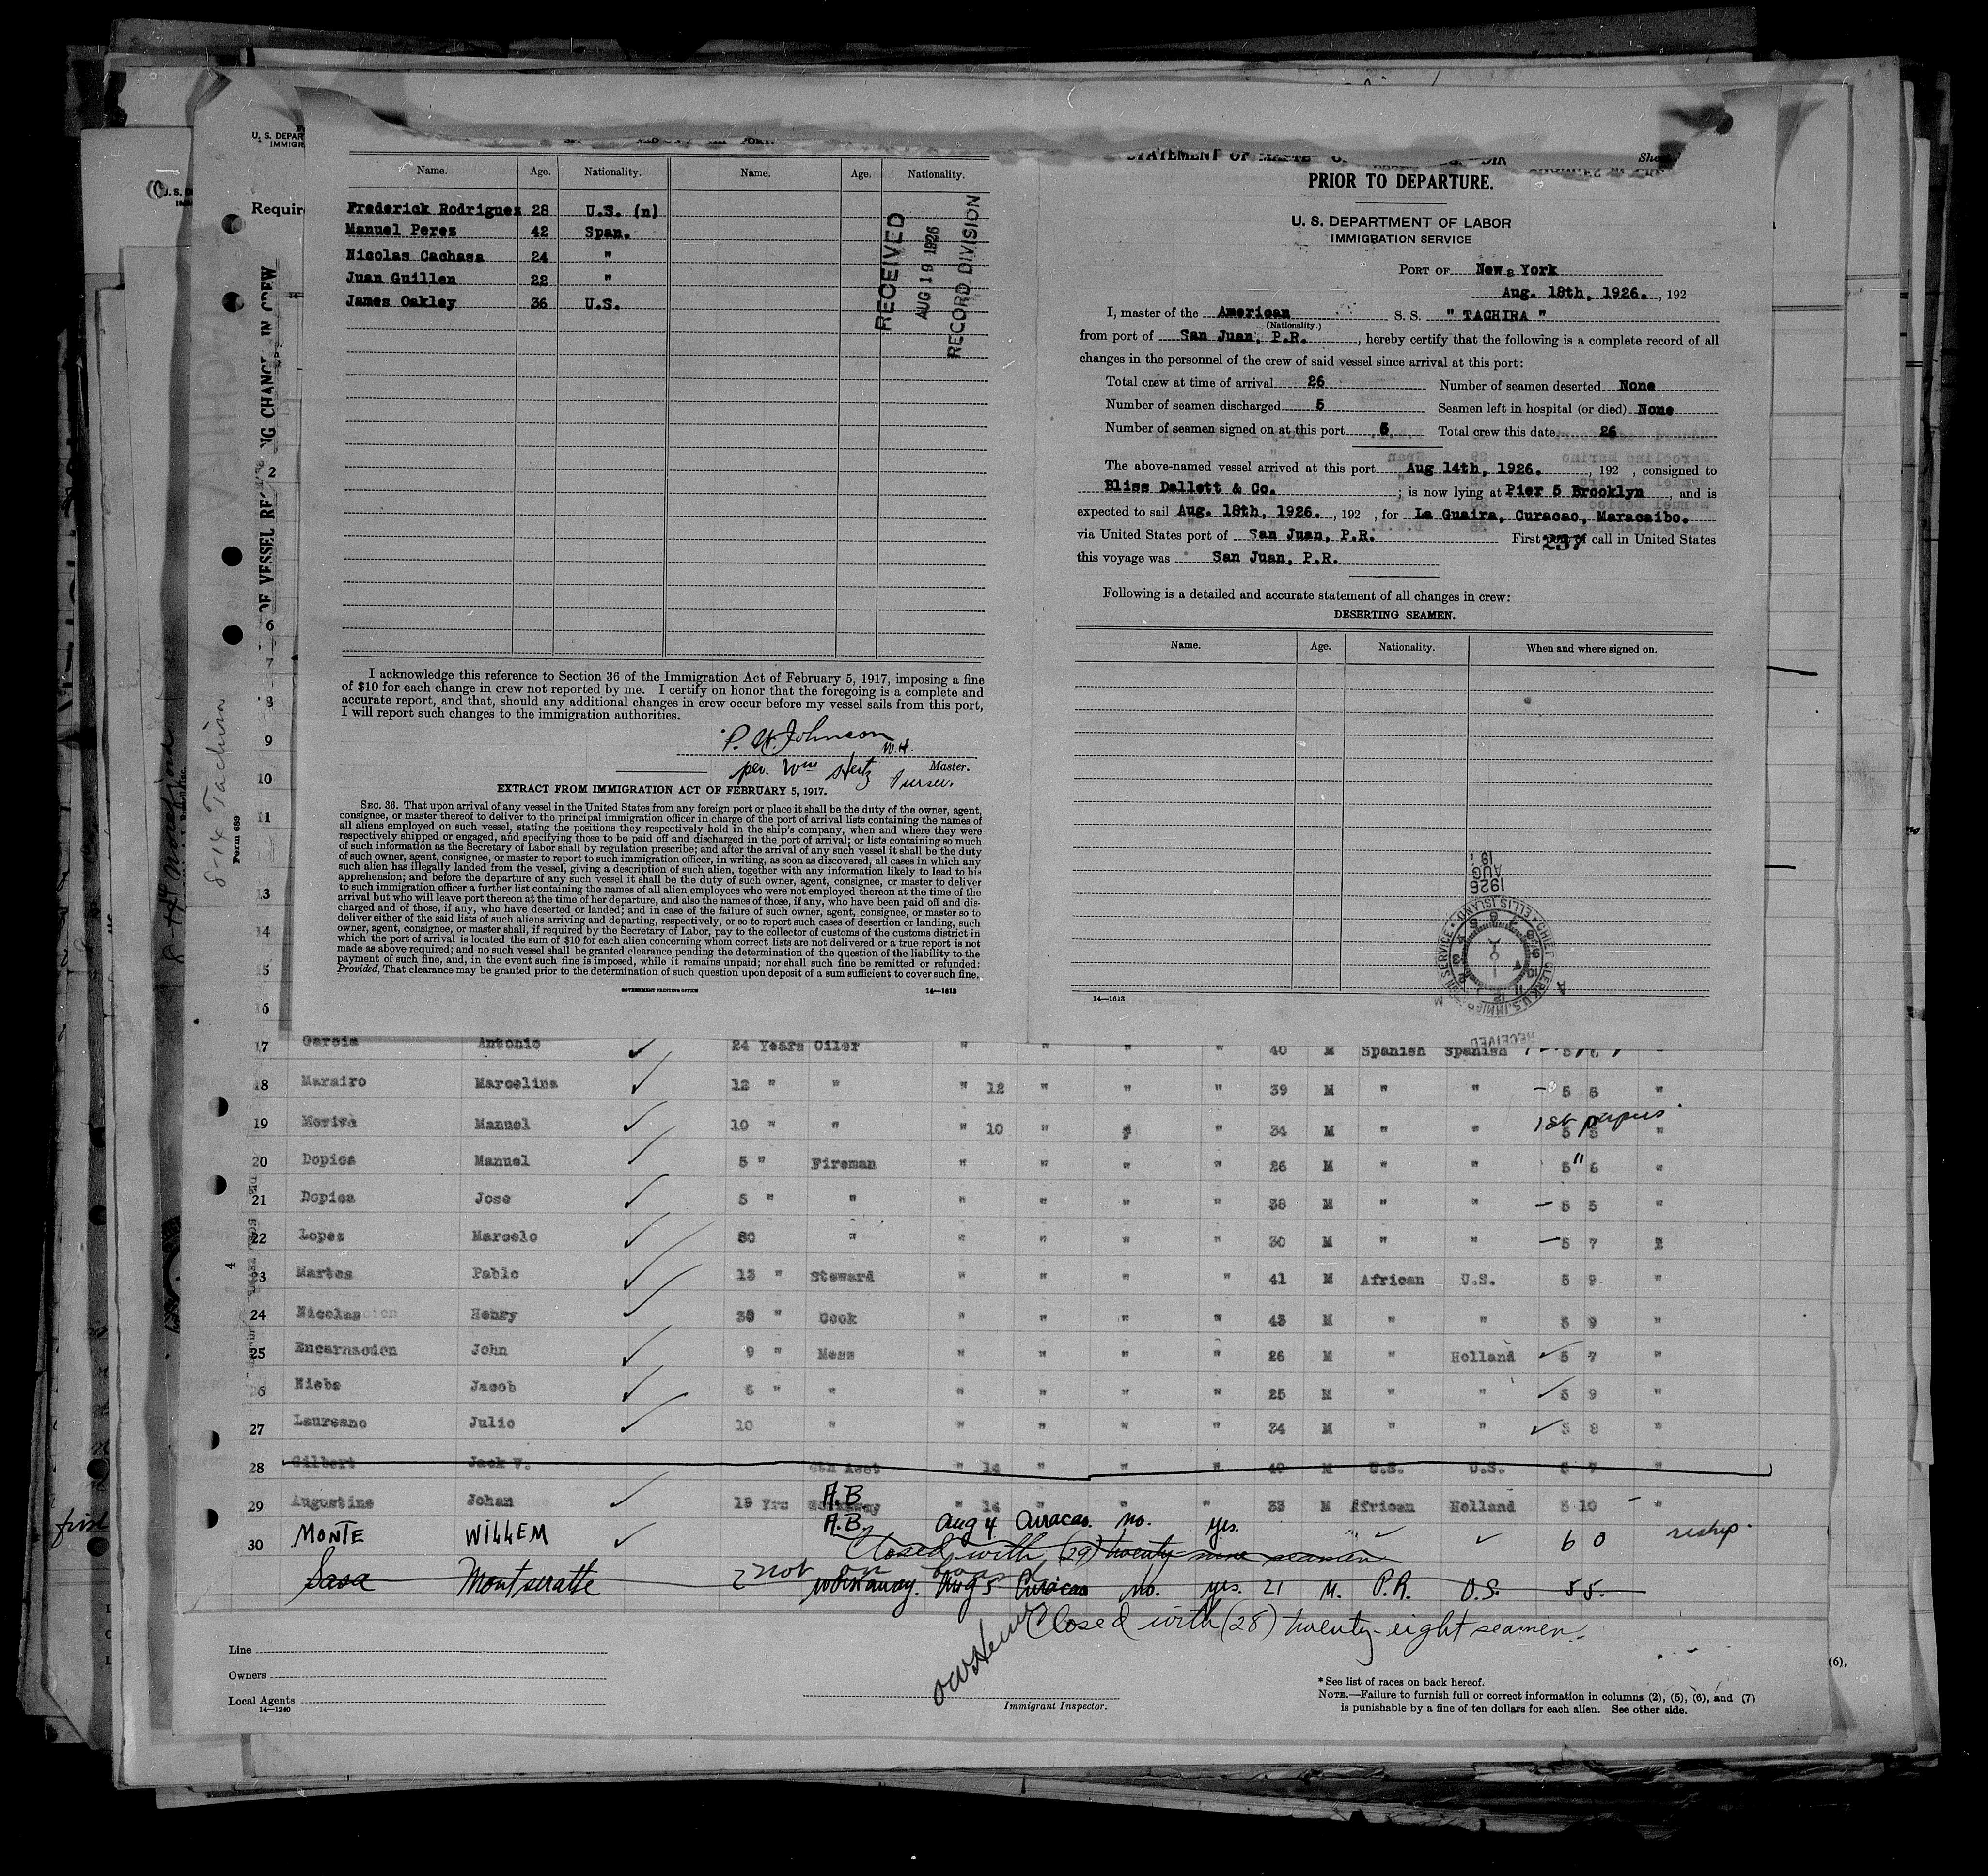 Name. Age. Nationality. Name. Age. Nationality.
Frederick Rodriguez 28 U.S. (n)
Manuel Perez 42 Span.
Nicolas Cachasa 24 "
Juan Guillen 22 "
James Oakley 36 U.S.
RECEIVED
AUG 19 1926
RECORD DIVISION
I acknowledge this reference to Section 36 of the Immigration Act of February 5, 1917, imposing a fine
of $10 for each change in crew not reported by me. I certify on honor that the foregoing is a complete and
accurate report, and that, should any additional changes in crew occur before my vessel sails from this port,
I will report such changes to the immigration authorities.
P. W Johnson W.H.
Master.
per. Wm Hertz Purser.
EXTRACT FROM IMMIGRATION ACT OF FEBRUARY 5, 1917.
SEC. 36. That upon arrival of any vessel in the United States from any foreign port or place it shall be the duty of the owner, agent,
consignee, or master thereof to deliver to the principal immigration officer in charge of the port of arrival lists containing the names of
all aliens employed on such vessel, stating the positions they respectively hold in the ship's company, when and where they were
respectively shipped or engaged, and specifying those to be paid off and discharged in the port of arrival; or lists containing so much
of such information as the Secretary of Labor shall by regulation prescribe; and after the arrival of any such vessel it shall be the duty
of such owner, agent, consignee, or master to report to such immigration officer, in writing, as soon as discovered, all cases in which any
such alien has illegally landed from the vessel, giving a description of such alien, together with any information likely to lead to his
apprehension; and before the departure of any such vessel it shall be the duty of such owner, agent, consignee, or master to deliver
to such immigration officer a further list containing the names of all alien employees who were not employed thereon at the time of the
arrival but who will leave port thereon at the time of her departure, and also the names of those, if any, who have been paid off and dis-
charged and of those, if any, who have deserted or landed; and in case of the failure of such owner, agent, consignee, or master so to
deliver either of the said lists of such aliens arriving and departing, respectively, or so to report such cases of desertion or landing, such
owner, agent, consignee, or master shall, if required by the Secretary of Labor, pay to the collector of customs of the customs district in
which the port of arrival is located the sum of $10 for each alien concerning whom correct lists are not delivered or a true report is not
made as above required; and no such vessel shall be granted clearance pending the determination of the question of the liability to the
payment of such fine, and, in the event such fine is imposed, while it remains unpaid; nor shall such fine be remitted or refunded:
Provided, That clearance may be granted prior to the determination of such question upon deposit of a sum sufficient to cover such fine.
GOVERNMENT PRINTING OFFICE 14—1613
STATEMENT OF
PRIOR TO DEPARTURE.
U. S. DEPARTMENT OF LABOR
IMMIGRATION SERVICE
PORT OF New York
Aug. 18th, 1926. , 192
I, master of the American S. S. " TACHIRA "
(Nationality.)
from port of San Juan, P.R. , hereby certify that the following is a complete record of all
changes in the personnel of the crew of said vessel since arrival at this port:
Total crew at time of arrival 26 Number of seamen deserted None
Number of seamen discharged 5 Seamen left in hospital (or died) None
Number of seamen signed on at this port 5 Total crew this date 26
The above-named vessel arrived at this port Aug 14th, 1926. , 192 , consigned to
Bliss Dallett & Co. ; is now lying at Pier 5 Brooklyn , and is
expected to sail Aug. 18th, 1926. , 192 , for La Guaira, Curacao, Maracaibo.
via United States port of San Juan, P.R. First port of call in United States
237
this voyage was San Juan, P.R.
Following is a detailed and accurate statement of all changes in crew:
DESERTING SEAMEN.
Name. Age. Nationality. When and where signed on.
AUG 19
1926
CHIEF CLERK U.S. IMMIGRATION SERVICE • ELLIS ISLAND •
RECEIVED
14—1613
U. S. DEPAR
IMMIGR
Requir
OF VESSEL
NG CHANGE IN CREW
Form 689
8-14 Tachira
17 Garcia Antonio 24 Years Oiler " " " " 40 M Spanish Spanish
18 Marairo Marcelina 12 " " " 12 " " " 39 M " " 5 5 "
19 Moriva Manuel 10 " " " 10 " " " 34 M " " 1st papers 5 5 "
20 Dopica Manuel 5 " Fireman " " " " 26 M " " 5 " 6 "
21 Dopica Jose 5 " " " " " " 38 M " " 5 5 "
22 Lopez Marcelo 30 " " " " " 30 M " " 5 7
23 Martes Pablo 13 " Steward " " " " 41 M African U.S. 5 9 "
24 Nicolas Henry 30 " Cook " " " " 43 M " " 5 9 "
25 Encarnacion John 9 " Mess " " " " 26 M " Holland 5 7 "
26 Niebs Jacob 6 " " " " " " 25 M " " 5 9 "
27 Laureano Julio 10 " " " " " 34 M " " 5 8 "
28 Gilbert Jack V. 4th Asst " 14 " " " 40 M U.S. U.S. 5 7 "
29 Augustine Johan 19 Yrs Workaway A.B " 14 " " " 33 M African Holland 5 10 "
30 MONTE WILLEM A.B. Aug 4 Curacao. no. yes. " 6 0 reship.
Closed with (29) twenty nine seamen
Sasa Montseratte 2 not on board workaway. Aug 5 Curacao no. yes. 21 M. P.R. U.S. 5 5.
Closed with (28) twenty-eight seamen.
Line
Owners
Local Agents
14—1240
Immigrant Inspector.
* See list of races on back hereof.
NOTE.—Failure to furnish full or correct information in columns (2), (5), (6), and (7)
is punishable by a fine of ten dollars for each alien. See other side.
(6),